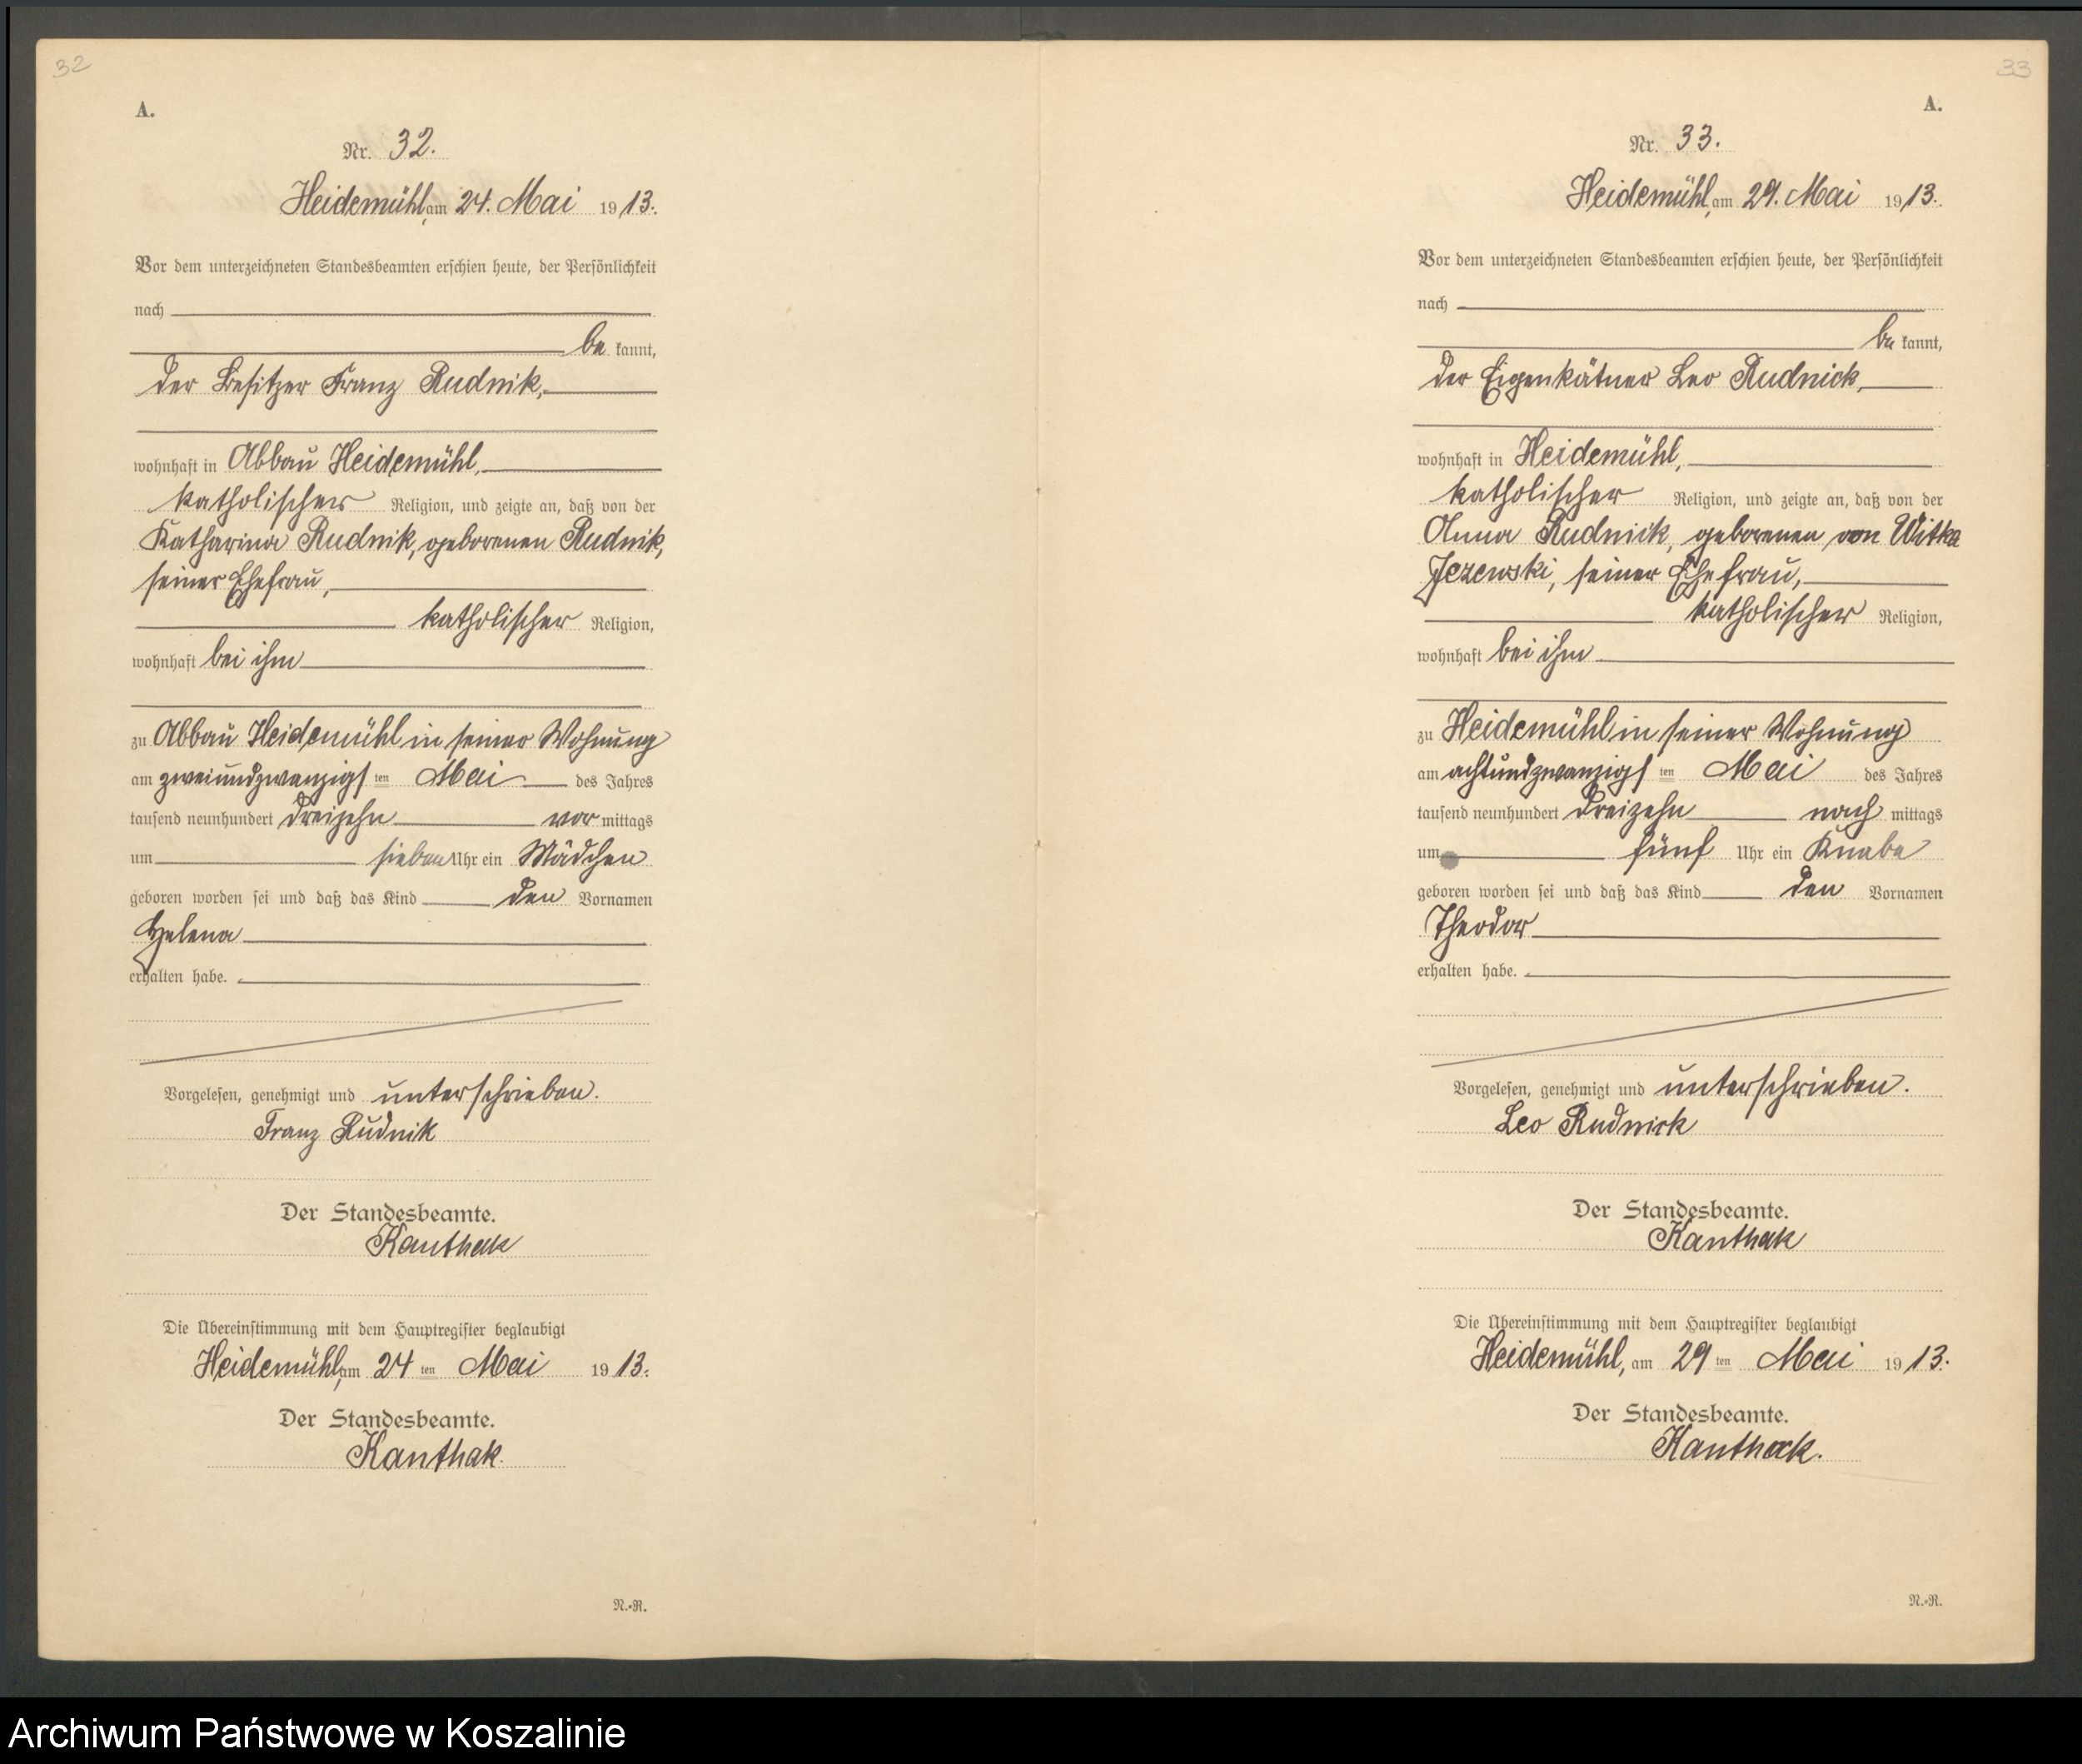 32
A.
Nr. 32.
Heidemühl, am 24. Mai 1913.
Vor dem unterzeichneten Standesbeamten erschien heute, der Persönlichkeit
nach
be kannt,
der Besitzer Franz Rudnik,
wohnhaft in Abbau Heidemühl,
katholischer Religion, und zeigte an, daß von der
Katharina Rudnik, geborenen Rudnik,
seiner Ehefrau,
katholischer Religion,
wohnhaft bei ihm
zu Abbau Heidemühl in seiner Wohnung
am zweiundzwanzigsten Mai des Jahres
tausend neunhundert dreizehn vor mittags
um sieben Uhr ein Mädchen
geboren worden sei und daß das Kind den Vornamen
Helena
erhalten habe.
Vorgelesen, genehmigt und unterschrieben.
Franz Rudnik
Der Standesbeamte.
Kanthak
Die Übereinstimmung mit dem Hauptregister beglaubigt
Heidemühl, am 24 ten Mai 1913.
Der Standesbeamte.
Kanthak.
N.-R.
33
A.
Nr. 33.
Heidemühl, am 29. Mai 1913.
Vor dem unterzeichneten Standesbeamten erschien heute, der Persönlichkeit
nach
be kannt,
der Eigenkätner Leo Rudnick,
wohnhaft in Heidemühl,
katholischer Religion, und zeigte an, daß von der
Anna Rudnick, geborenen von Witka
Jezewski, seiner Ehefrau,
katholischer Religion,
wohnhaft bei ihm
zu Heidemühl in seiner Wohnung
am achtundzwanzigsten Mai des Jahres
tausend neunhundert dreizehn nach mittags
um fünf Uhr ein Knabe
geboren worden sei und daß das Kind den Vornamen
Theodor
erhalten habe.
Vorgelesen, genehmigt und unterschrieben.
Leo Rudnick
Der Standesbeamte.
Kanthak
Die Übereinstimmung mit dem Hauptregister beglaubigt
Heidemühl, am 29 ten Mai 1913.
Der Standesbeamte.
Kanthak.
N.-R.
Archiwum Państwowe w Koszalinie